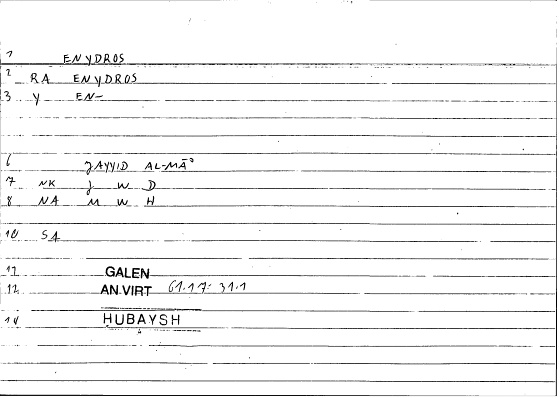 1 ENYDROS
2 RA ENYDROS
3 Y EN-
6 JAYYID AL-MĀʾ
7 NK J W D
8 NA M W H
10 SA
11 GALEN
12 AN.VIRT 61.17: 31.1
14 HUBAYSH